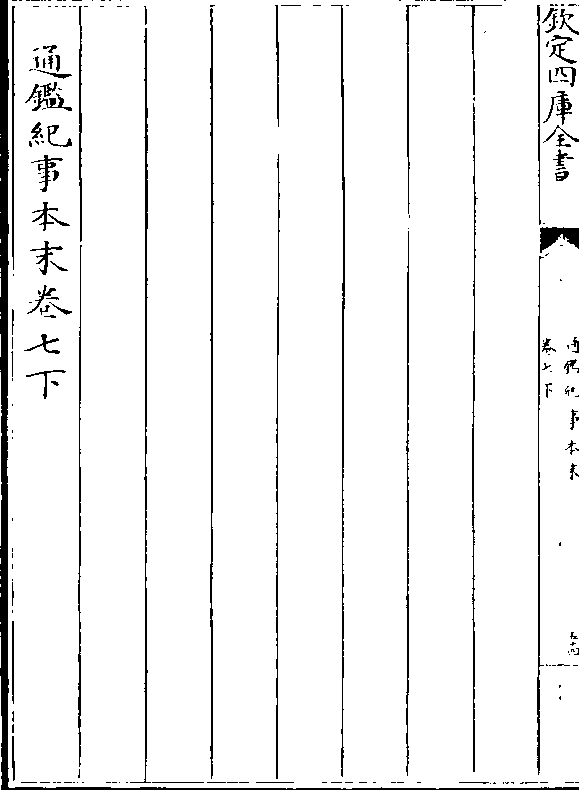 欽定四庫全書
通鑑紀事本末
卷七下
通鑑紀事本末卷七下